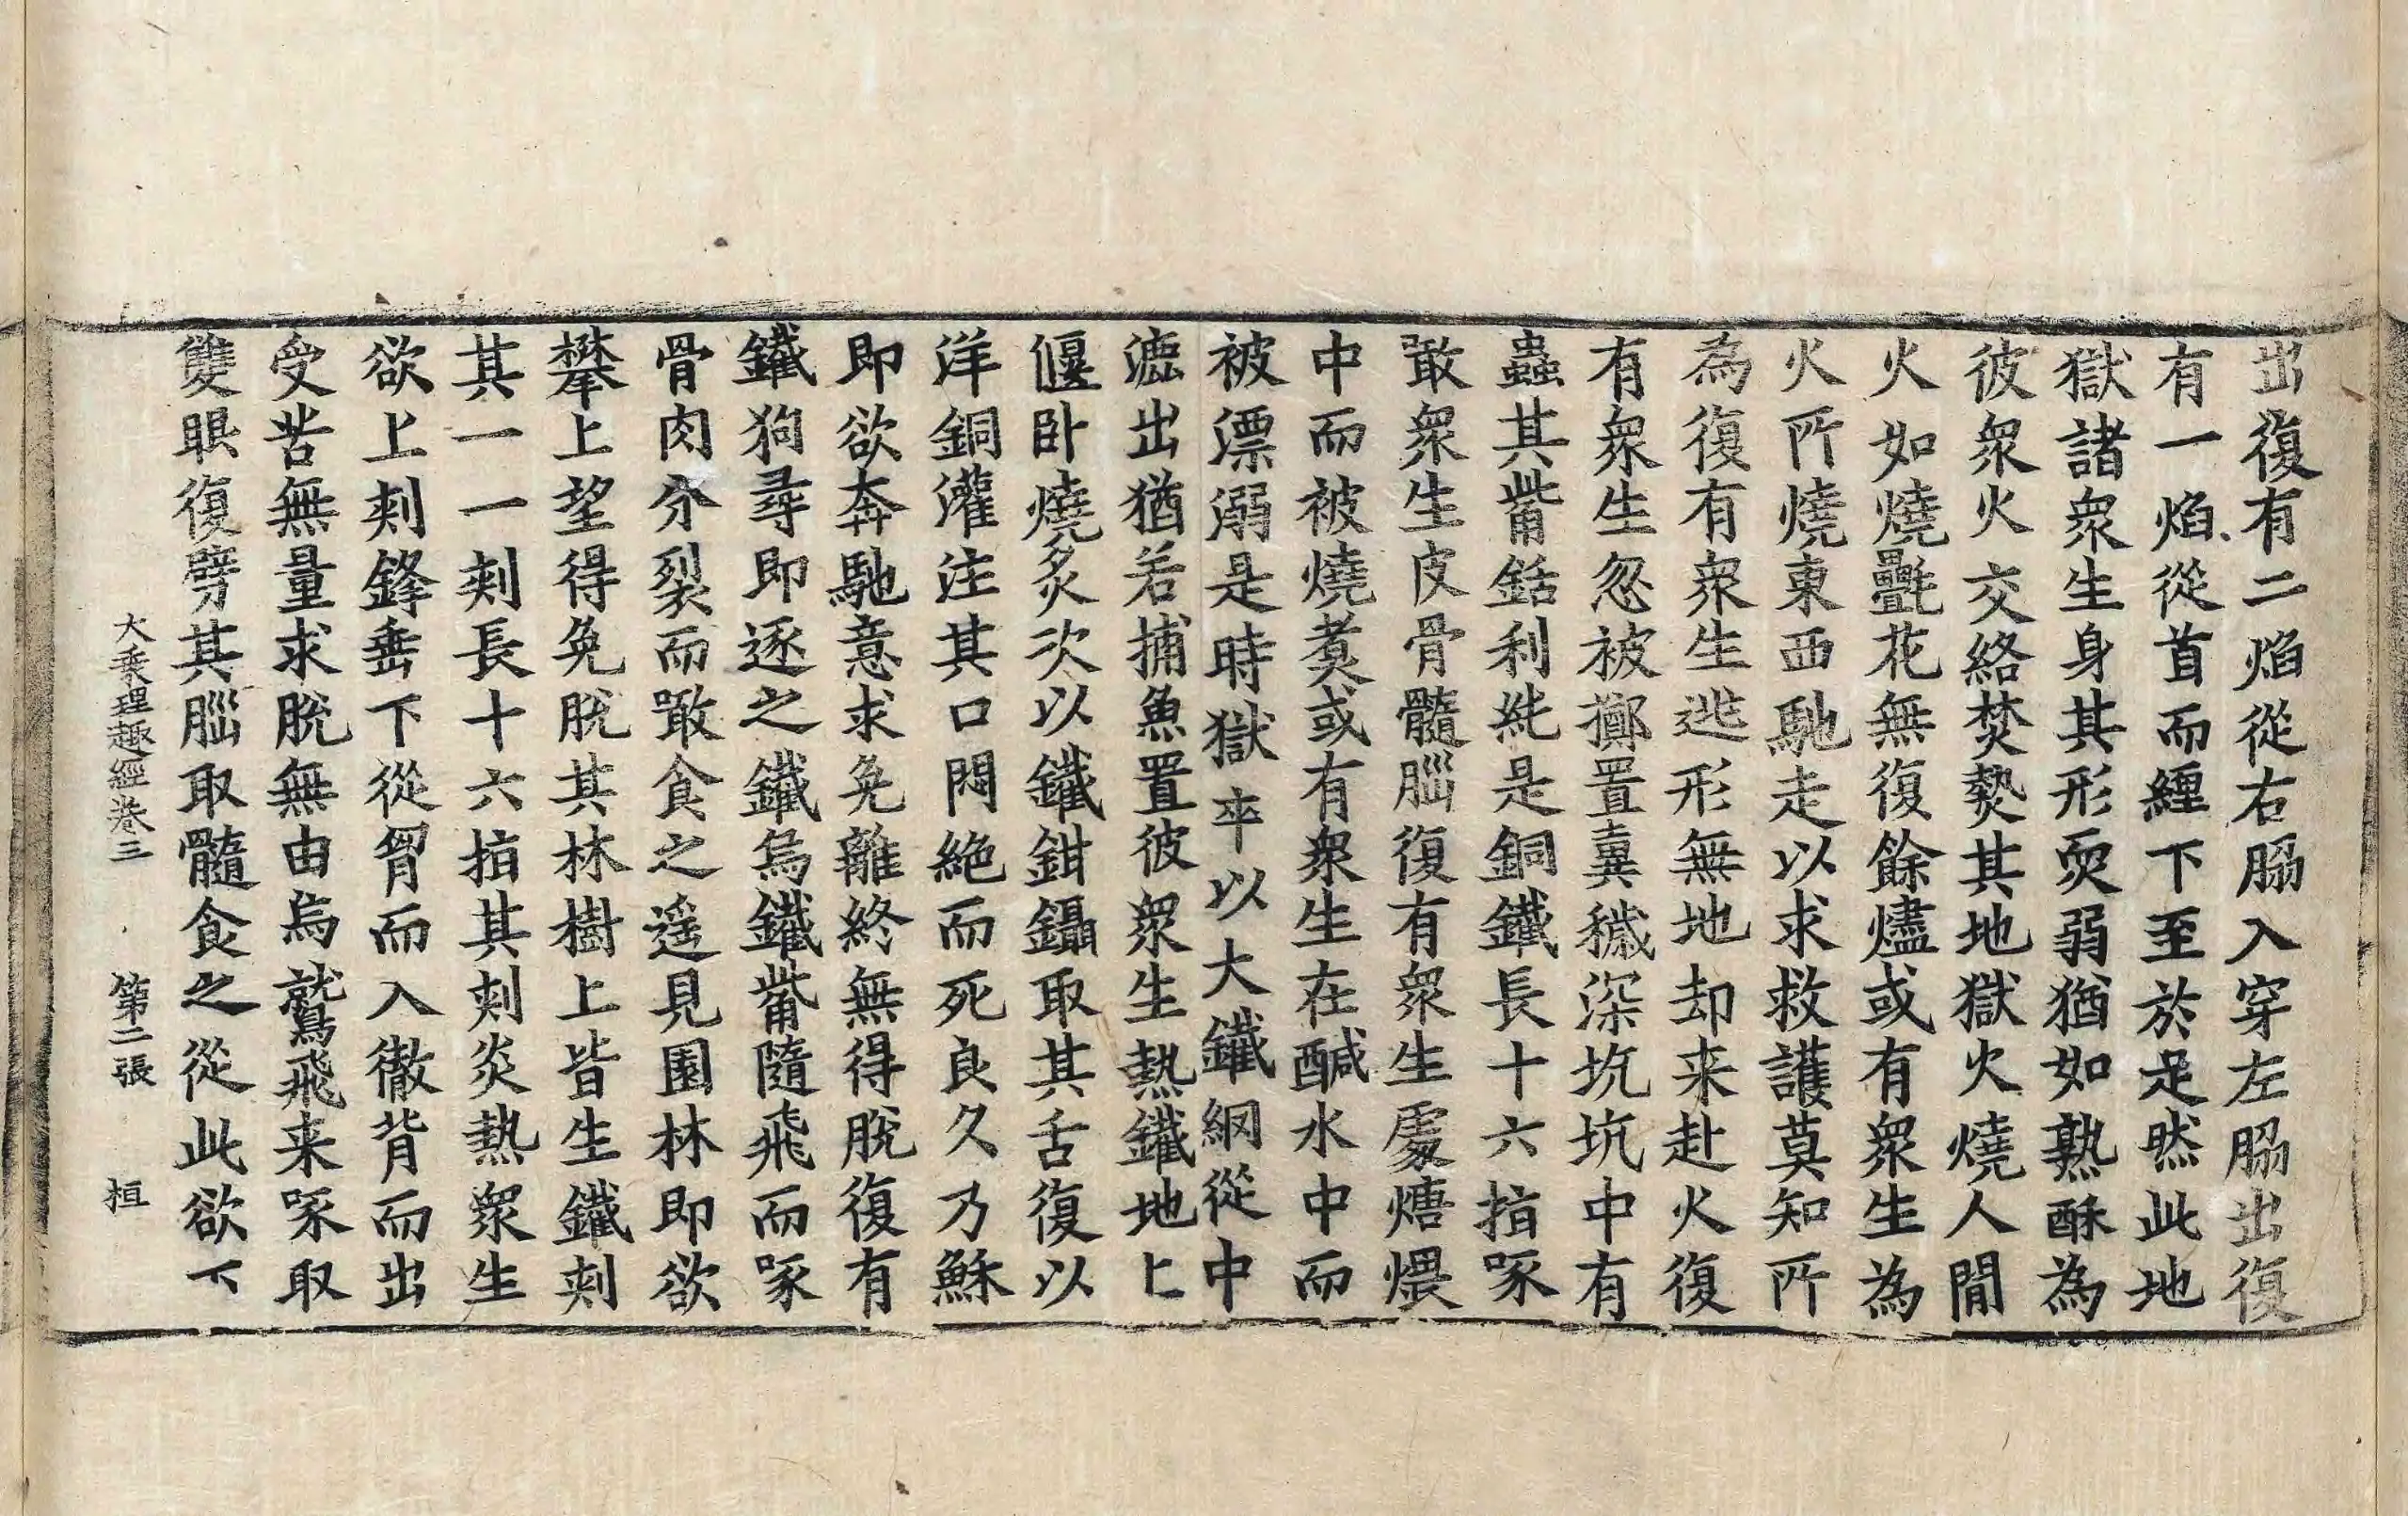 出復有二焰從右脇入穿左脇出復
有一焰從首而纏下至於足然此地
獄諸衆生身其形耎弱猶如熟酥為
彼衆火交絡焚爇其地獄火燒人間
火如燒氎花無復餘燼或有衆生為
火所燒東西馳走以求救護莫知所
為復有衆生逃形無地却来赴火復
有衆生忽被擲置糞穢深坑坑中有
蟲其觜銛利純是銅鐵長十六指啄
噉衆生皮骨髓腦復有衆生處煻煨
中而被燒煑或有衆生在鹹水中而
被漂溺是時獄卒以大鐵網從中
漉出猶若捕魚置彼衆生熱鐵地上
偃卧燒炙次以鐵鉗鑷取其舌復以
洋銅灌注其口悶絶而死良久乃穌
即欲奔馳意求免離終無得脫復有
鐵狗尋即逐之鐵烏鐵觜隨飛而啄
骨肉分裂而噉食之遥見園林即欲
攀上望得免脫其林樹上皆生鐵刺
其一一刺長十六指其刺炎熱衆生
欲上刺鋒垂下從胷而入徹背而出
受苦無量求脫無由烏鷲飛来啄取
雙眼復劈其腦取髓食之從此欲下
大乘理趣經卷三 第二張 桓